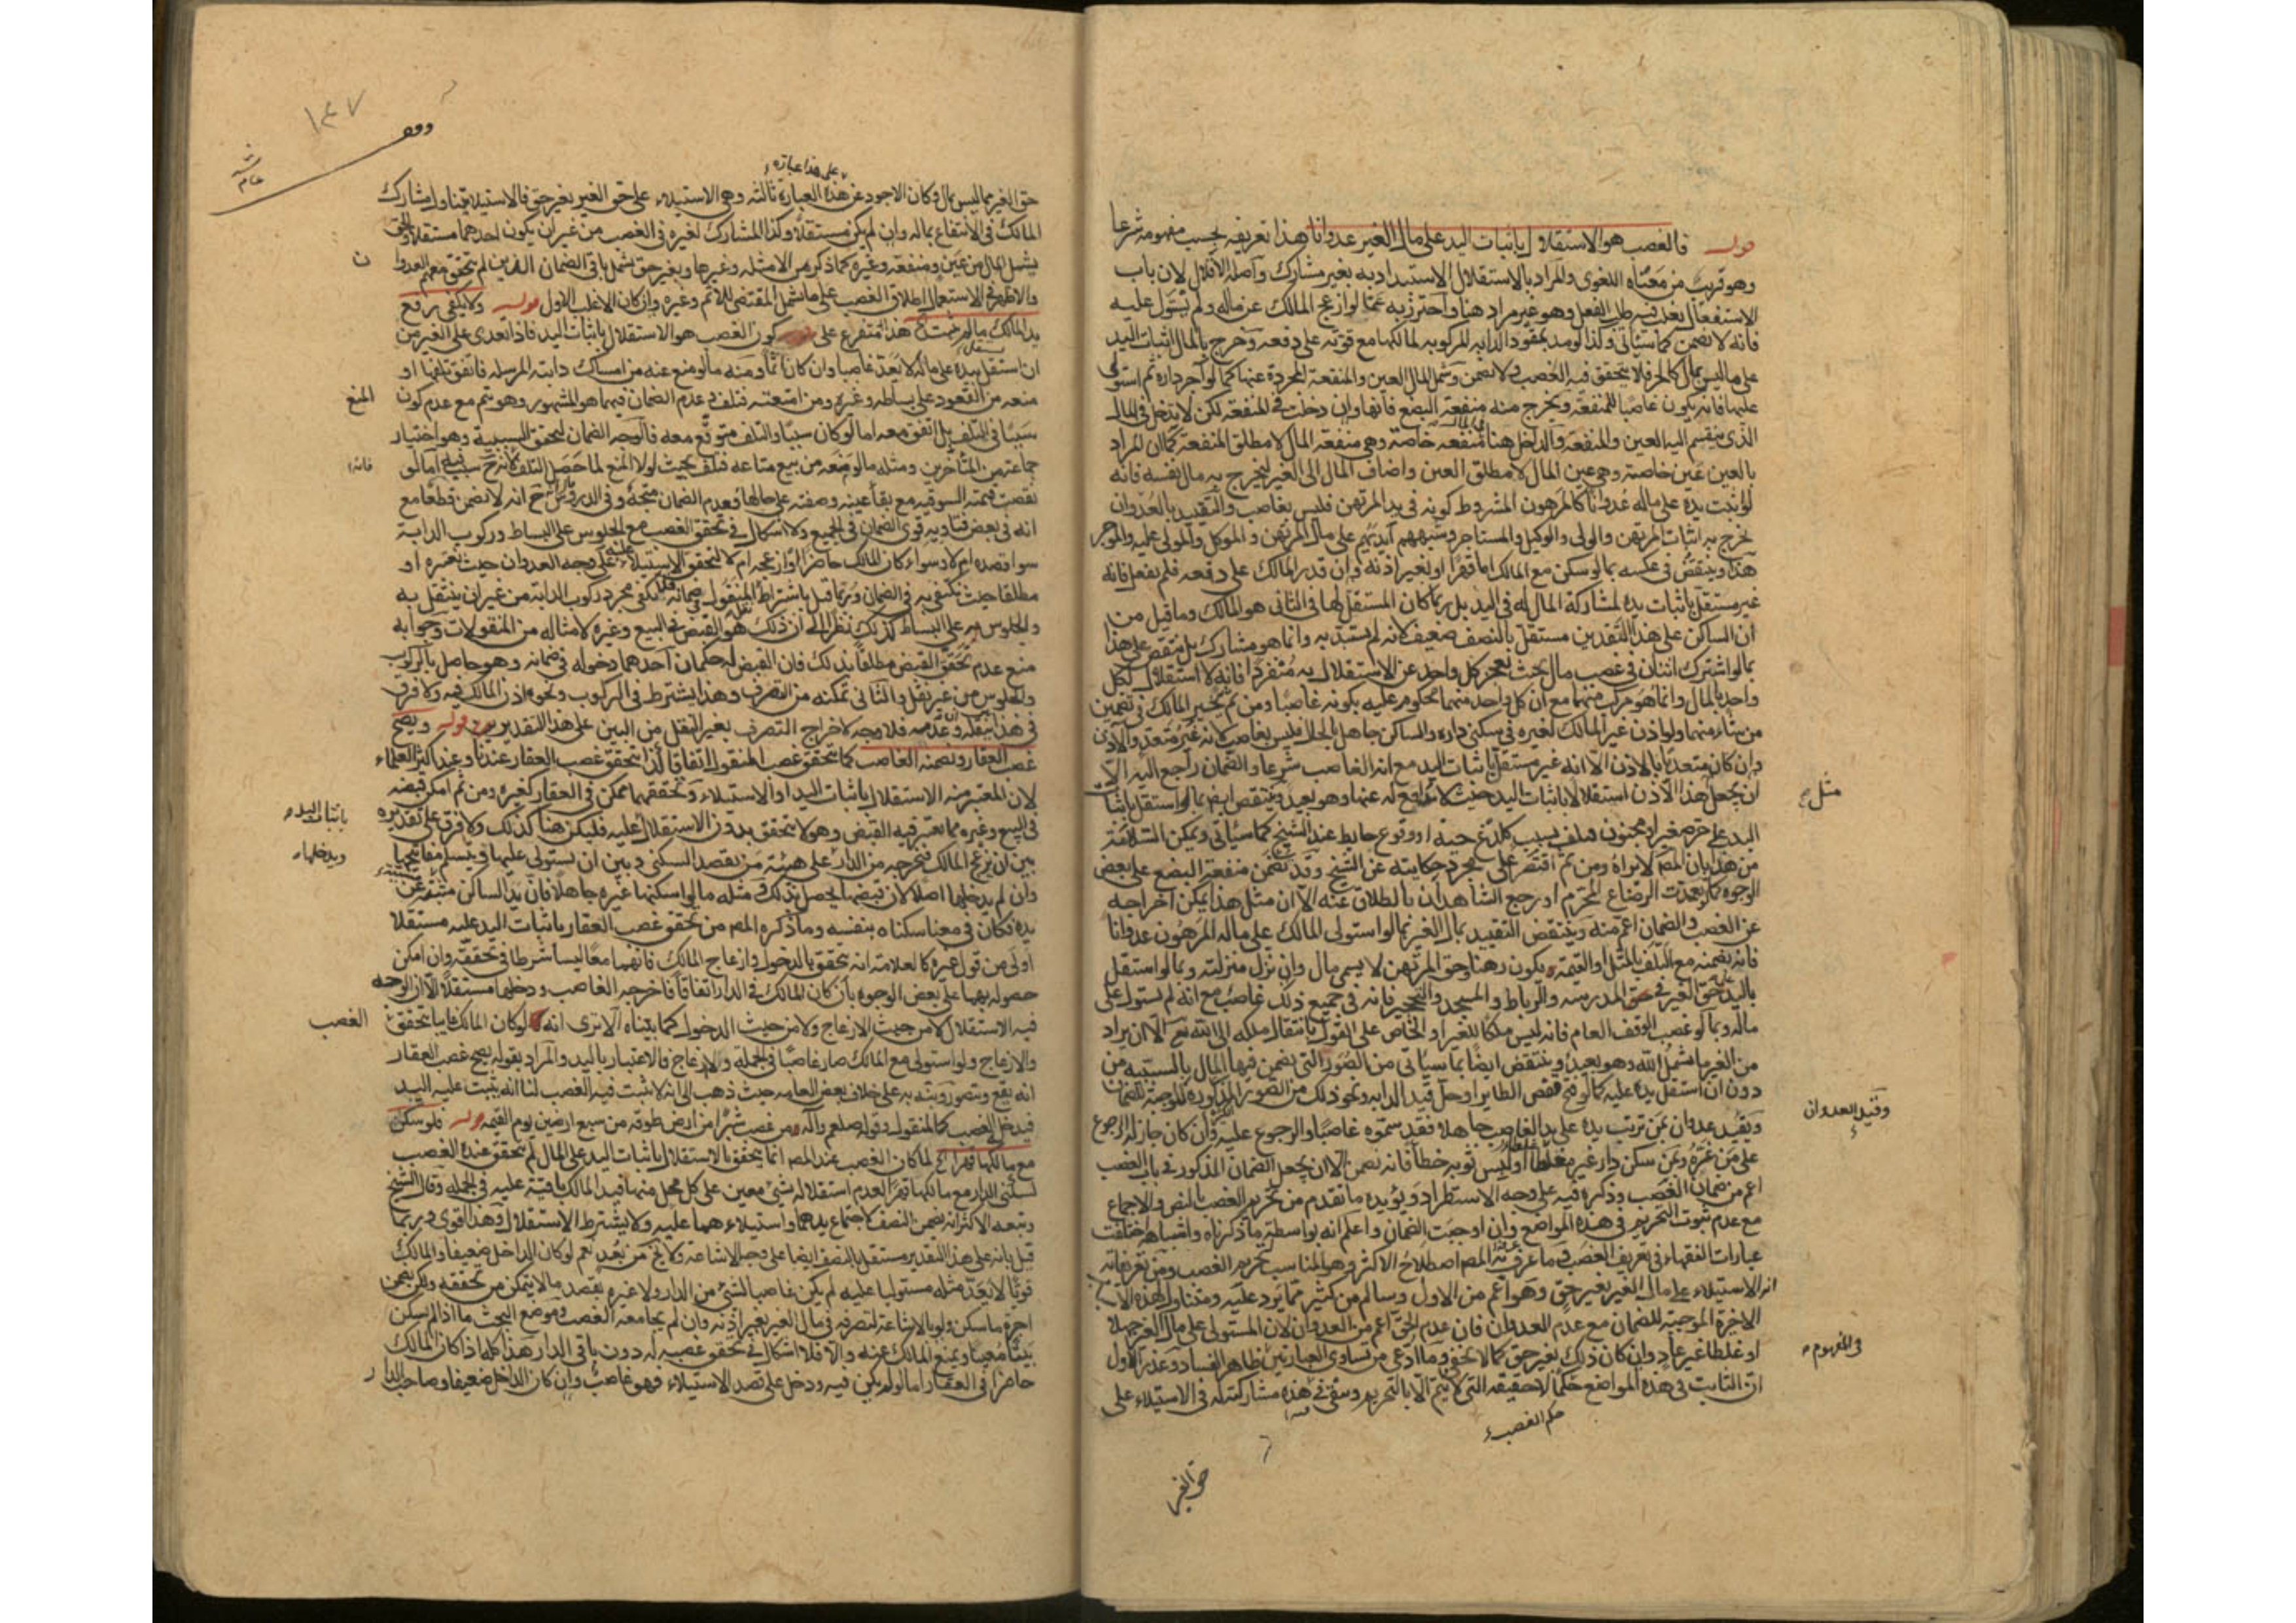 قوله فالغصب هو الاستقلال باثبات اليد على مال الغير عدوانا هذا تعريفه بحسب مفهومه شرعا
وهو قريب من معناه اللغوى والمراد بالاستقلال الاستبداد به بغير مشارك واصله الاقلال لان باب
الاستفعال يغلب فيه طلب الفعل وهو غير مراد هنا واحترز به عما لو ازعج المالك عن ماله ولم يستول عليه
فانه لا يضمن كما سيأتى وكذا لو مد بمقود الدابه المركوبه لمالكها مع قوته على دفعه وخرج بالمال اثبات اليد
على ما ليس بمال كالحر فلا يتحقق فيه الغصب ولا يضمن وشمل المال العين والمنفعة المجردة عنها كما لو آجر داره ثم استولى
عليها فانه يكون غاصبا للمنفعة ويخرج منه منفعة البضع فانها وان دخلت فى المنفعة لكن لا يدخل فى المال
الذى ينقسم اليه العين والمنفعة والداخل هنا منفعه خاصة وهى منفعة المال لا مطلق المنفعة كما ان المراد
بالعين عين خاصة وهى عين المال لا مطلق العين واضاف المال الى الغير ليخرج به مال نفسه فانه
لو اثبت يده على ماله عدوانا كالمرهون المشروط كونه فى يد المرتهن فليس بغاصب والتقييد بالعدوان
يخرج به اثبات المرتهن والولى والوكيل والمستاجر وشبههم ايديهم على مال المرتهن و الموكل والمولى عليه والموجر
هذا وينتقض فى عكسه بما لو سكن مع المالك اما قهرا او بغير اذنه وان قدر المالك على دفعه فلم يفعل فانه
غير مستقل باثبات يده لمشاركة المال له فى اليد بل ربما كان المستقل لها فى الثانى هو المالك وما قيل من
ان الساكن على هذا التقدير مستقل بالنصف ضعيف لانه لم يستبد به وانما هو مشارك بل منتقض على هذا
بما لو اشترك اثنان فى غصب مال بحيث يعجز كل واحد عن الاستقلال به منفردا فانه لا استقلال لكل
واحد بالمال وانما هو مركب منهما مع ان كل واحد منهما محكوم عليه بكونه غاصبا ومن ثم تخير المالك فى تضمين
من شاء منهما ولو اذن غير المالك لغيره فى سكنى داره والساكن جاهل بالحال فليس بغاصب لانه غير متعد والآذن
وان كان متعديا بالاذن الا انه غير مستقل باثبات اليد مع انه الغاصب شرعا والضمان راجع اليه الا
ان يجعل هذا الآذن استقلالا باثبات اليد حيث لا رافع له عنها وهو بعيد وينتقض ايضا بما لو استقل باثبات
مثل صح
اليد على حر صغير او مجنون فتلف بسبب كلدغ حية او وقوع حايط عند الشيخ كما سيأتى ويمكن السلامة
من هذا بان المص لا يراه ومن ثم اقتصر على مجرد حكايته عن الشيخ وقد تضمن منفعة البضع على بعض
الوجوه كما لو تعمدت الرضاع المحرم او رجع الشاهدان بالطلاق عنه الا ان مثل هذا يمكن اخراجه
عن الغصب والضمان اعم منه وينتقض التقييد بمال الغير بما لو استولى المالك على ماله المرهون عدوانا
فانه يضمنه مع التلف بالمثل او القيمة ويكون رهنا وحق المرتهن لا يسمى مال وان نزل منزلته وبما لو استقل
باليد على حق الغير فى حق المدرسه والرباط والمسجد والتحجير فانه فى جميع ذلك غاصب مع انه لم يستول على
ماله وبما لو غصب الوقف العام فانه ليس ملكا للغير او الخاص على القول بانتقال ملكه الى الله تع الا ان يراد
من الغير ما يشمل الله وهو بعيد وينتقض ايضا بما سيأتى من الصور التى يضمن فيها المال بالتسبيب من
دون ان استقل يده عليه كما لو فتح قفص الطاير او حل قيد الدابه ونحو ذلك من الصور المذكوره الموجبة للضمان
وقيد العدوان
ويقيد عدوان بمن ترتب يده على يد الغاصب جاهلا فقد سموه غاصبا والرجوع عليه وان كان جاز له الرجوع
على من غره وبمن سكن دار غيره غلطا او لبس ثوبه خطأ فانه يضمن الا ان يجعل الضمان المذكور فى باب الغصب
اعم من ضمان الغصب وذكره فيه على وجه الاستطراد ويؤيده ما تقدم من تحريم الغصب بالنص والاجماع
مع عدم ثبوت التحريم فى هذه المواضع وان اوجبت الضمان واعلم انه بواسطة ما ذكرناه واشباهه اختلفت
عبارات الفقهاء فى تعريف الغصب وما عرف به المص اصطلاح الاكثر وهو المناسب لتحريم الغصب ومن تعريفاته
انه الاستيلاء على مال الغير بغير حق وهو اعم من الاول وسالم من كثير مما يرد عليه ومتناول لهذه الاسباب
الاخيرة الموجبة للضمان مع عدم العدوان فان عدم الحق اعم من العدوان لان المستولى على مال الغير جهلا
فى المفهوم
او غلطا غير عاد وان كان ذلك بغير حق كما لا يخفى وما ادعى من تساوى العبارتين ظاهر الفساد وعذر الاول
ان الثابت فى هذه المواضع حكما لا حقيقه التى لا يتم الا بالتحريم وبقى فى هذه مشاركته له فى الاستيلاء على
حكم الغصب
حق الغير
١٤٧
وقف
على هذا عباره
حق الغير مما ليس بمال وكان الاجود عن هذه العبارة ثالثه وهى الاستيلاء على حق الغير بغير حق فالاستيلاء يتناول المشارك
المالك فى الانتفاع بماله وان لم يكن مستقلا وكذا المشارك لغيره فى الغصب من غير ان يكون احدهما مستقلا والحق
يشمل المال من عين ومنفعة وغيره كما ذكر من الامثله وغيرها وبغير حق يشمل باقى الضمان الذين لم يتحقق معهم العدوا
ن
والاظهر فى الاستعمال اطلاق الغصب على ما يشمل المقتضى للاثم وغيره وان كان الاغلب الاول قوله ولا يكفى رفع
يد المالك ما لم يثبت الخ هذا متفرع على كون الغصب هو الاستقلال باثبات اليد فاذا تعدى على الغير من
ان استقل بيده على ماله لا يعد غاصبا وان كان آثما ومنه ما لو منع عنه من امساك دابته المرسله فاتفق تلفها او
منعه من القعود على بساطه وغيره ومن امتعته فتلف وعدم الضمان فيهما هو المشهور وهو يتم مع عدم كون
المنع
سببا فى التلف بل اتفق معه اما لو كان سببا والتلف متوقع معه فالوجه الضمان لتحقق السببية وهو اختيار
جماعة من المتأخرين ومثله ما لو منعه من بيع متاعه فتلف بحيث لولا المنع لما حصل التلف لانه ح سببه اما لو
فانه
نقصت قيمته السوقيه مع بقاء عينه وصفته على حالها فعدم الضمان متجه وفى الدروس ح انه لا يضمن قطعا مع
انه فى بعض فتاويه قوى الضمان فى الجميع ولا اشكال فى تحقق الغصب مع الجلوس على البساط وركوب الدابة
سواء قصده ام لا وسواء كان المالك حاضرا وازعجه ام لا لتحقق الاستيلاء عليه على وجه العدوان حيث نعتبره او
مطلقا حيث نكتفى به فى الضمان وربما قيل باشتراط المنقول فى ضمانه فلا يكفى مجرد ركوب الدابة من غير ان ينتقل به
والجلوس على البساط كذلك نظرا الى ان ذلك هو القبض فى البيع وغيره لامثاله من المنقولات وجوابه
منع عدم تحقق القبض مطلقا بذلك فان القبض له حكمان احدهما دخوله فى ضمانه وهو حاصل بالركوب
والجلوس من غير نقل والثانى تمكنه من التصرف وهذا يشترط فى الركوب ونحوه اذن المالك فيه ولا فرق
فى هذا بين نقله وعدمه فلا وجه لاخراج التصرف بغير النقل من البين على هذا التقديرين قوله ويصح
غصب العقار ويضمنه الغاصب كما يتحقق غصب المنقول اتفاقا كذا يتحقق غصب العقار عندنا وعند اكثر العلماء
لان المعتبر منه الاستقلال باثبات اليد او الاستيلاء وتحققهما ممكن فى العقار كغيره ومن ثم امكن قبضه
فى البيع وغيره مما يعتبر فيه القبض وهو لا يتحقق بدون الاستقلال عليه فليكن هنا كذلك ولا فرق على تقديره
باثبات اليد
بين ان يزعج المالك فيخرجه من الدار على هيئة من يقصد السكنى وبين ان يستولى عليها ويتسلم مفاتيحها
ويدخلها
وان لم يدخلها اصلا لان قبضها يحصل بذلك وفى مثله ما لو اسكنها غيره جاهلا فان يد الساكن مثبته عن
يده فكان فى معنا سكناه بنفسه وما ذكره المص من تحقق غصب العقار باثبات اليد عليه مستقلا
اولى من قول غيره كالعلامة انه يتحقق بالدخول وازعاج المالك فانهما معا ليسا شرطا فى تحققه وان امكن
حصوله بهما على بعض الوجوه بان كان المالك فى الدار اتفاقا فاخرجه الغاصب ودخلها مستقلا الا ان الوجه
فيه الاستقلال لا من حيث الازعاج ولا من حيث الدخول كما بيناه الا ترى انه لو كان المالك غايبا يتحقق
الغصب
والازعاج ولو استولى مع المالك صار غاصبا فى الجملة والازعاج فالاعتبار باليد والمراد بقوله يصح غصب العقار
انه يقع ويتصور ونبه به على خلاف بعض العامه حيث ذهب الى انه لا يثبت فيه الغصب لنا انه يثبت عليه اليد
فيدخل الغصب كالمنقول وقوله صلعم وآله من غصب شبرا من ارض طوقه من سبع ارضين يوم القيمه قوله فلو سكن
مع مالكها قهرا الخ لما كان الغصب عند المص انما يتحقق بالاستقلال باثبات اليد على المال لم يتحقق عنده الغصب
لسكنى الدار مع مالكها قهرا لعدم استقلاله بشئ معين على كل محل منها فيد المالك باقية عليه فى الجمله وقال الشيخ
وتبعه الاكثر انه يضمن النصف لاجتماع يدهما واستيلاءهما عليه ولا يشترط الاستقلال وهذا اقوى وربما
قيل بانه على هذا التقدير مستقل بالنصف ايضا على وجه الاشاعة ولا يخ من بعد نعم لو كان الداخل ضعيفا والمالك
قويا لا يعد مثله مستوليا عليه لم يكن غاصبا لشئ من الدار ولا غيره بقصد ما لا يتمكن من تحققه ولكن يضمن
اجرة ما سكن ولو بالاشاعة لتصرفه فى مال الغير بغير اذنه وان لم يجامعه الغصب وموضع البحث ما اذا لم يسكن
بيتا معينا ويمنع المالك عنه والا فلا اشكال فى تحقق غصبيه له دون باقى الدار هذا كله اذا كان المالك
حاضرا فى العقار اما لو لم يكن فيه ودخل على قصد الاستيلاء فهو غاصب وان كان الداخل ضعيفا وصاحب الدار